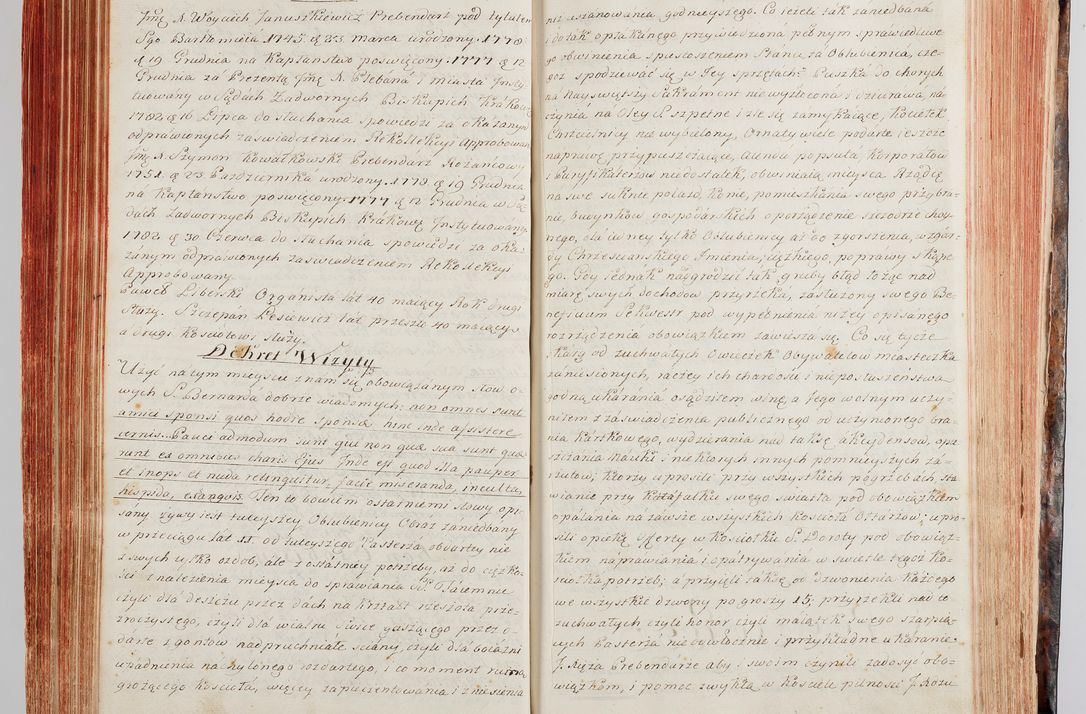 Jmę X. Woyciech Januszkiewicz Prebendarz pod tytułem
Sgo Bartłomieia 1745 d 23 Marca urodzony. 1770
d 19 Grudnia na Kapłanstwo poswięcony. 1777 d 12
Grudnia za Prezentą Jmę X. Plebana i miasta Insty-
tuowany w Sądach Zadwornych Biskupich Krakow.
1782 d 16 Lipca do słuchania spowiedzi za okazanym
odprawionych zaswiadczeniem Rekollekcyi Approbowan
Jmę X. Szymon Kowałkowski Prebendarz Rożańcowy
1751 d 23 Pazdziernika urodzony. 1773 d 19 Grudnia
na Kapłanstwo poswięcony. 1777 d 12 Grudnia w Są-
dach Zadwornych Biskupich Krakow. Instytuowany
1782 d 30 Czerwca do słuchania spowiedzi za oka-
zanym odprawionych zaswiadczeniem Rekollekcyi
Approbowany.
Paweł Liberski Organista lat 40 maiący Rok drugi
służy. Szczepan Lesiewicz lat przeszło 40 maiący
a drugi Kosciołowi służy.
Dekret Wizyty
Użyć na tym mieyscu znam się obowiązanym słow o-
wych S. Bernarda dobrze wiadomych: non omnes sunt
amici sponsi quos hodie sponsæ hinc inde assistere
cernis. Pauci admodum sunt qui non quæ sua sunt quæ-
runt ex omnibus charis Ejus. Inde est quod illa pauper
et inops et nuda relinquitur, facie miseranda, inculta,
hispida, exangvis. Ten to bowiem ostatniemi słowy opi-
sany żywy iest tuteyszey Oblubienicy Obraz zaniedbany
w przeciągu lat 11. od tuteyszego Pasterza obdartey nie
z swych tylko ozdob, ale z ostatniey potrzeby, aż do ciężko-
ści znalezienia mieysca do sprawiania SS. Taiemnic
czyli dla deszczu przez dach na krztałt rzeszota prze-
zroczystego, czyli dla wiatru swiece gaszącego przez o-
darte z gontow nadpruchniałe sciany, czyli dla boiaźni
upadnienia na chylonego rozdartego, i co moment ruiną
grożącego Kościoła, więcey zapieczentowania i zniesienia
niż uszanowania godnieyszego. Co ieżeli tak zaniedbana
i do tak opłakanego przywiedziona pełnym sprawiedliwe-
go obwinienia spustoszeniem Pańska Oblubienica, cze-
goż spodziewać się w Jey sprzętach? Puszka do chorych
na Nayswiętszy Sakrament niewyzłocona i dziurawa, na-
czynia na Oley S. szpetne i zle się zamykaiące, Kociełek
Chrzcielnicy nie wybielony, Ornaty wiele podarte ieszcze
naprawę przypuszczaiące, popsuta, Korporałow
i Puryfikaterzow niedostatek, obwiniaią mieysca Rządcę
na swe suknie poiazd, Konie, pomieszkania swego przybra-
nie, budynkow gospodarskich oporządzenie szczodrze hoy-
nego, dla iedney tylko Oblubienicy aż do zgorszenia, wzgar-
dy Chrzescianskiego Imienia, ciężkiego, poprawy skąpe-
go. Gdy iednak nadgrodzić tak gruby błąd łożąc nad
miarę swych dochodow przyrzekł, zasłużony swego Be-
neficium Sekwestr pod wypełnienia niżey opisanego
rozrządzenia obowiązkiem zawiesza się. Co się tycze
skarg od zuchwałych Owieczek Obywatelow miasteczka
zaniesionych, raczey ich hardości i nieposłuszeństwa
godną ukarania osądziłem winę, a Jego wolnym uczy-
niłem z zaswiadczenia publicznego od uczynionego bra-
nia kartkowego, wydzierania nad taksę akcydensow, opu-
szczania Nauki i niektorych innych pomnieyszych za-
rzutow; ktorzy uprosili przy wszystkich pogrzebach, sta-
wianie przy Katafalku swego swiatła pod obowiązkiem
opalania na zawsze wszystkich Kościoła Ołtarzow; upro-
sili opiekę Offerty w Kościołku S. Doroty pod obowiąz-
kiem naprawiania i opatrywania w swietle tegoż Ko-
sciołka potrzeb; a przyięli taksę od dzwonienia każdego
we wszystkie dzwony po groszy 15; przyrzekli nad to
zuchwałych czyli honor czyli maiątek swego szarpią-
cych Pasterza nieodwłocznie i przykładne ukaranie.
J. Xięża Prebendarze aby i swoim czynili zadosyć obo-
wiązkom, i pomoc zwykłą w Kosciele pilnosci J. Xdzu